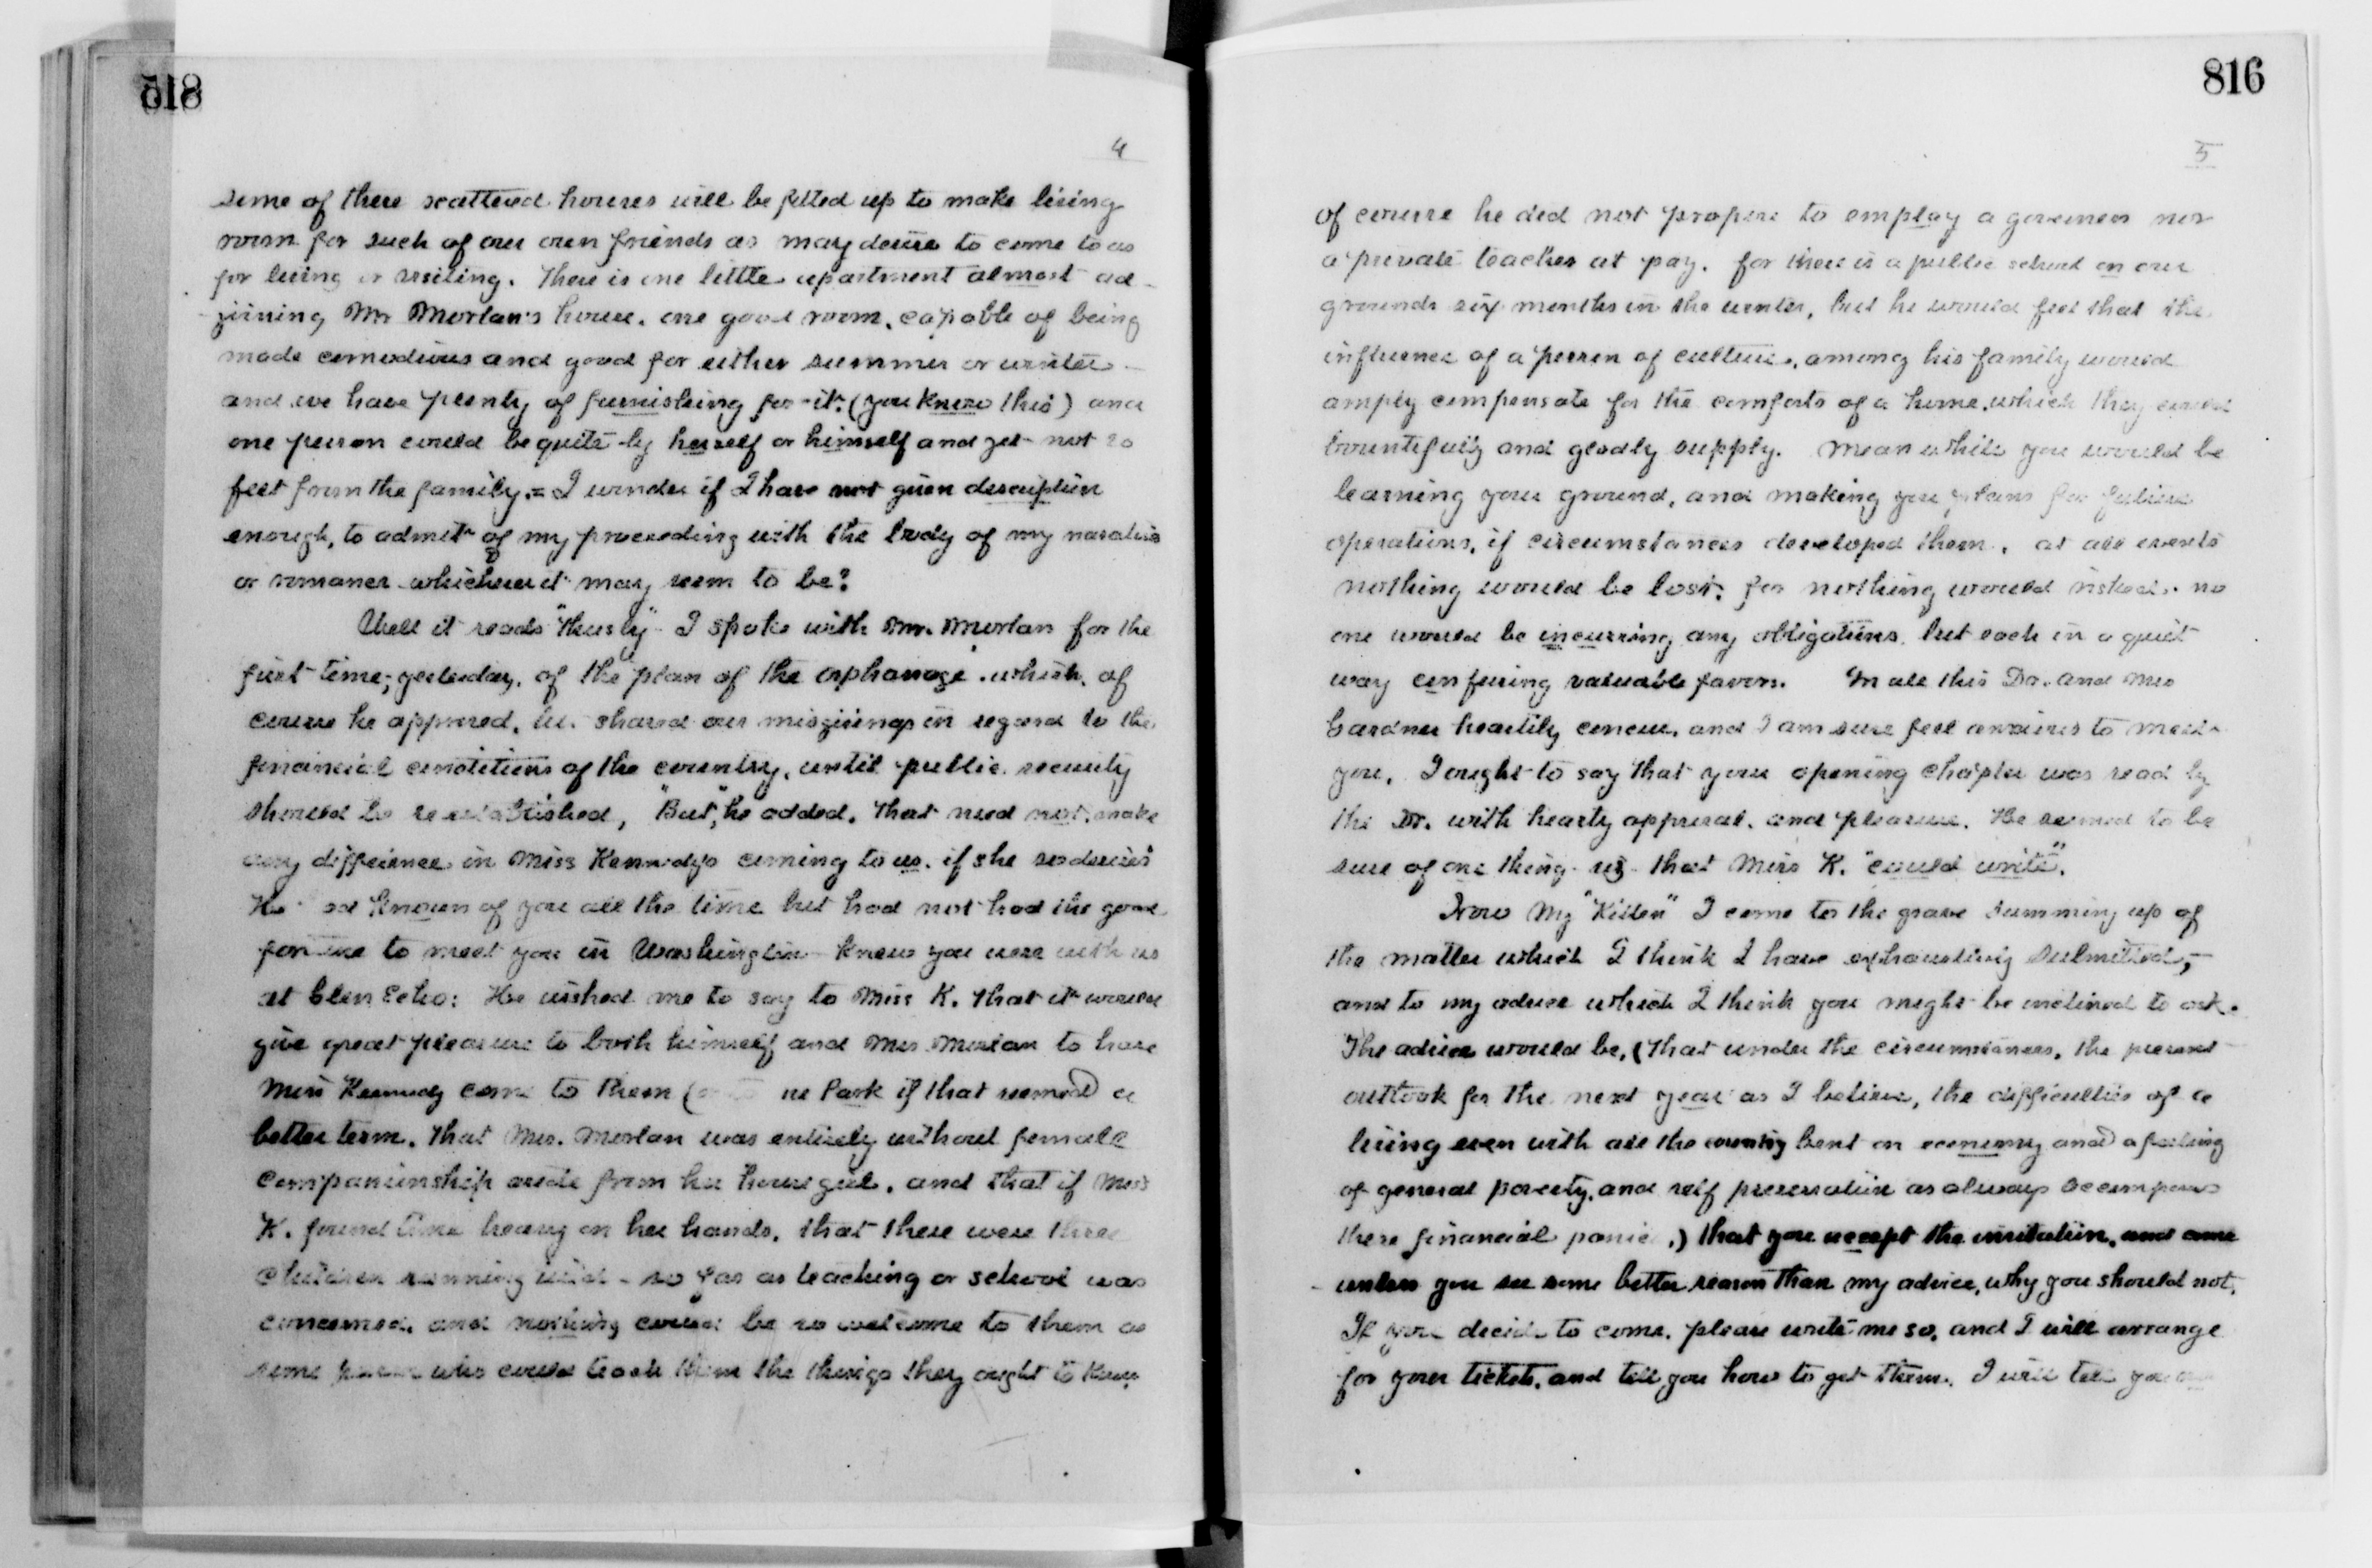 518
4
some of these scattered houses will be fitted up to make living
room for such of our own friends as may desire to come to us
for living or visiting. There is one little apartment almost ad-
joining Mr Morlan's house. one good room, capable of being
made comodious and good for either summer or winter -
and we have plenty of furnishing for it. (you know this) and
one person could be quite by herself or himself and yet not so
far from the family. = I wonder if I have not given description
enough, to admit of my proceeding with the body of my narative
or romance whichever it may seem to be?
Well it reads "thusly" I spoke with Mr. Morlan for the
first time, yesterday, of the plan of the orphanage. which, of
course he approved, he shared our misgivings in regard to the
financial conditions of the country, until public security
should be reestablished, "But", he added, that need not make
any difference in Miss Kennedys coming to us. if she so desires
He had known of you all the time but had not had the good
fortune to meet you in Washington - knew you were with us
at Glen Echo: He wished me to say to Miss K. that it would
give great pleasure to both himself and Mrs. Morlan to have
Miss Kennedy come to them ( Park if that seemed a
better term. that Mrs. Morlan was entirely without female
companionship aside from her house girl. and that if Miss
K. found time heavy on her hands, that there were three
children running wild - so far as teaching or school was
concerned, and nothing could be so welcome to them as
some person who could teach them the things they ought to know
816
5
of course he did not propose to employ a governess nor
a private teacher at pay. for there is a public school on our
grounds six months in the winter, but he would feel that the
influence of a person of culture, among his family would
amply compensate for the comforts of a home, which they could
bountifully and gladly supply. Mean while you would be
learning your ground, and making your plans for future
operations, if circumstances developed them. at all events
nothing would be lost; for nothing would risked. no
one would be incurring any obligations, but each in a quiet
way confering valuable favors. In all this Dr. and Mrs
Gardner heartily concur, and I am sure feel anxious to meet
you. I ought to say that your opening chapter was read by
the Dr. with hearty approval, and pleasure. He seemed to be
sure of one thing - viz - that Miss K. "could write".
Now My "Kitten" I come to the grave summing up of
the matter which I think I have exhaustively submitted, -
and to my advice which I think you might be inclined to ask.
The advice would be, (that under the circumstances, the present
outlook for the next year as I believe, the difficulties of a
living even with all the country bent on economy and a feeling
of general poverty, and self preservation as always accompany
these financial panic .) that you accept the invitation, and come
- unless you see some better reason than my advice, why you should not,
If you decide to come, please write me so, and I will arrange
for your tickets, and tell you how to get them. I will tell you